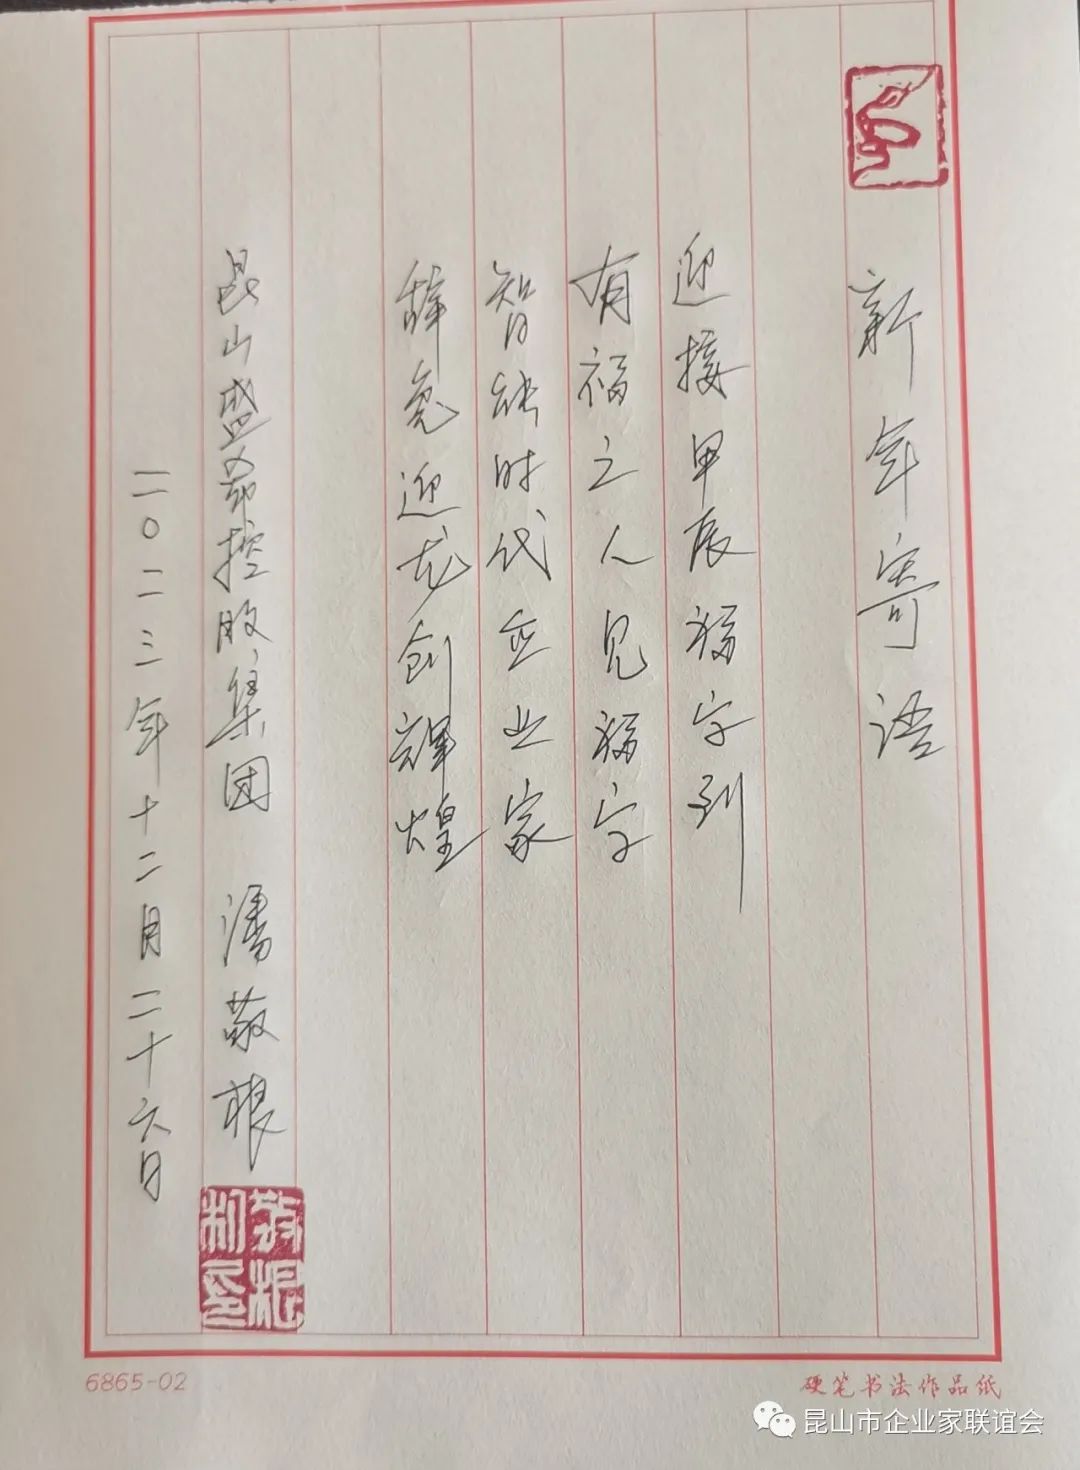 新年寄语
迎接甲辰福字到
有福之人见福字
智能时代企业家
辞兔迎龙创辉煌
昆山盛希控股集团 潘敬根
二〇二三年十二月二十六日
敬根
制印
6865-02
硬笔书法作品纸
昆山市企业家联谊会